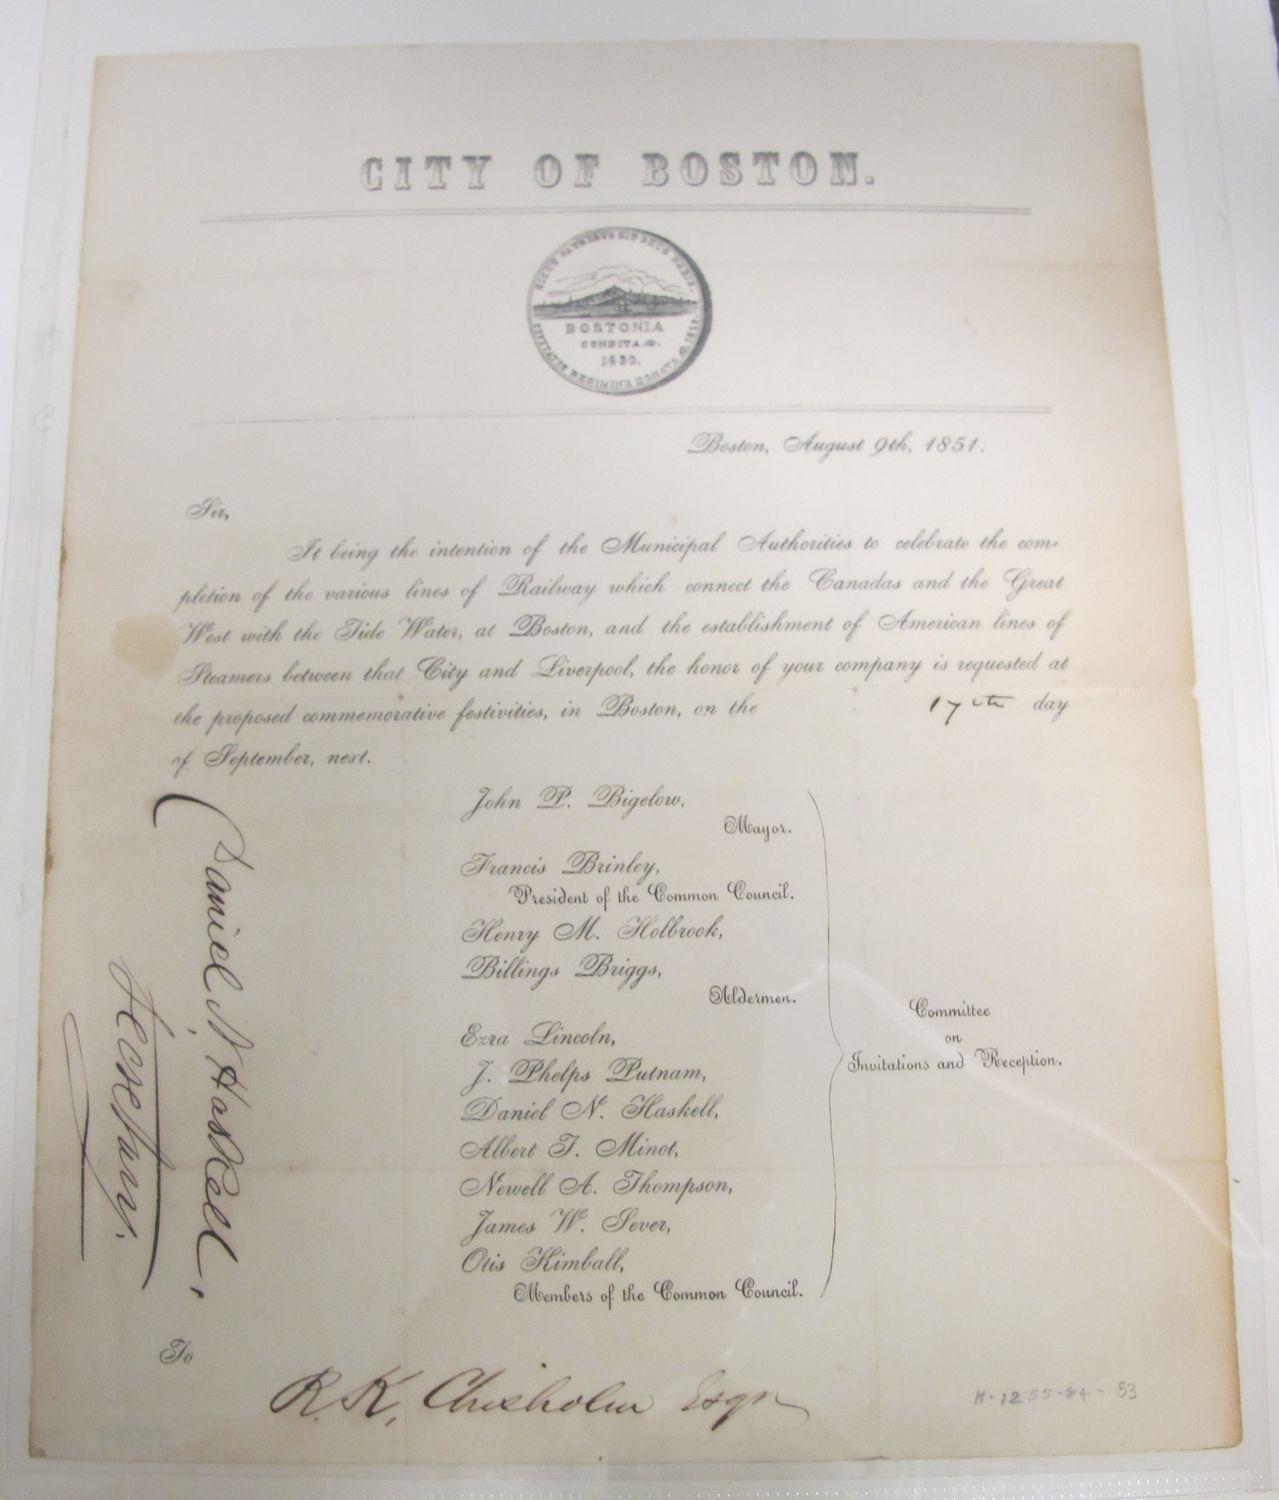 CITY OF BOSTON.
SICUT PATRIBUS SIT DEUS NOBIS.
BOSTONIA
CONDITA AD.
1630.
CIVITATIS REGIMINE DONATA AD. 1822.
Boston, August 9th, 1851.
Sir,
It being the intention of the Municipal Authorities to celebrate the com-
pletion of the various lines of Railway which connect the Canadas and the Great
West with the Tide Water, at Boston, and the establishment of American lines of
Steamers between that City and Liverpool, the honor of your company is requested at
the proposed commemorative festivities, in Boston, on the 17th day
of September, next.
John P. Bigelow,
Mayor.
Francis Brinley,
President of the Common Council.
Henry M. Holbrook,
Billings Briggs,
Aldermen.
Ezra Lincoln,
J. Phelps Putnam,
Daniel N. Haskell,
Albert T. Minot,
Newell A. Thompson,
James W. Sever,
Otis Kimball,
Members of the Common Council.
Committee
on
Invitations and Reception.
Daniel N. Haskell,
Secretary.
To
R. K. Chisholm Esqr
H-1255-84-53